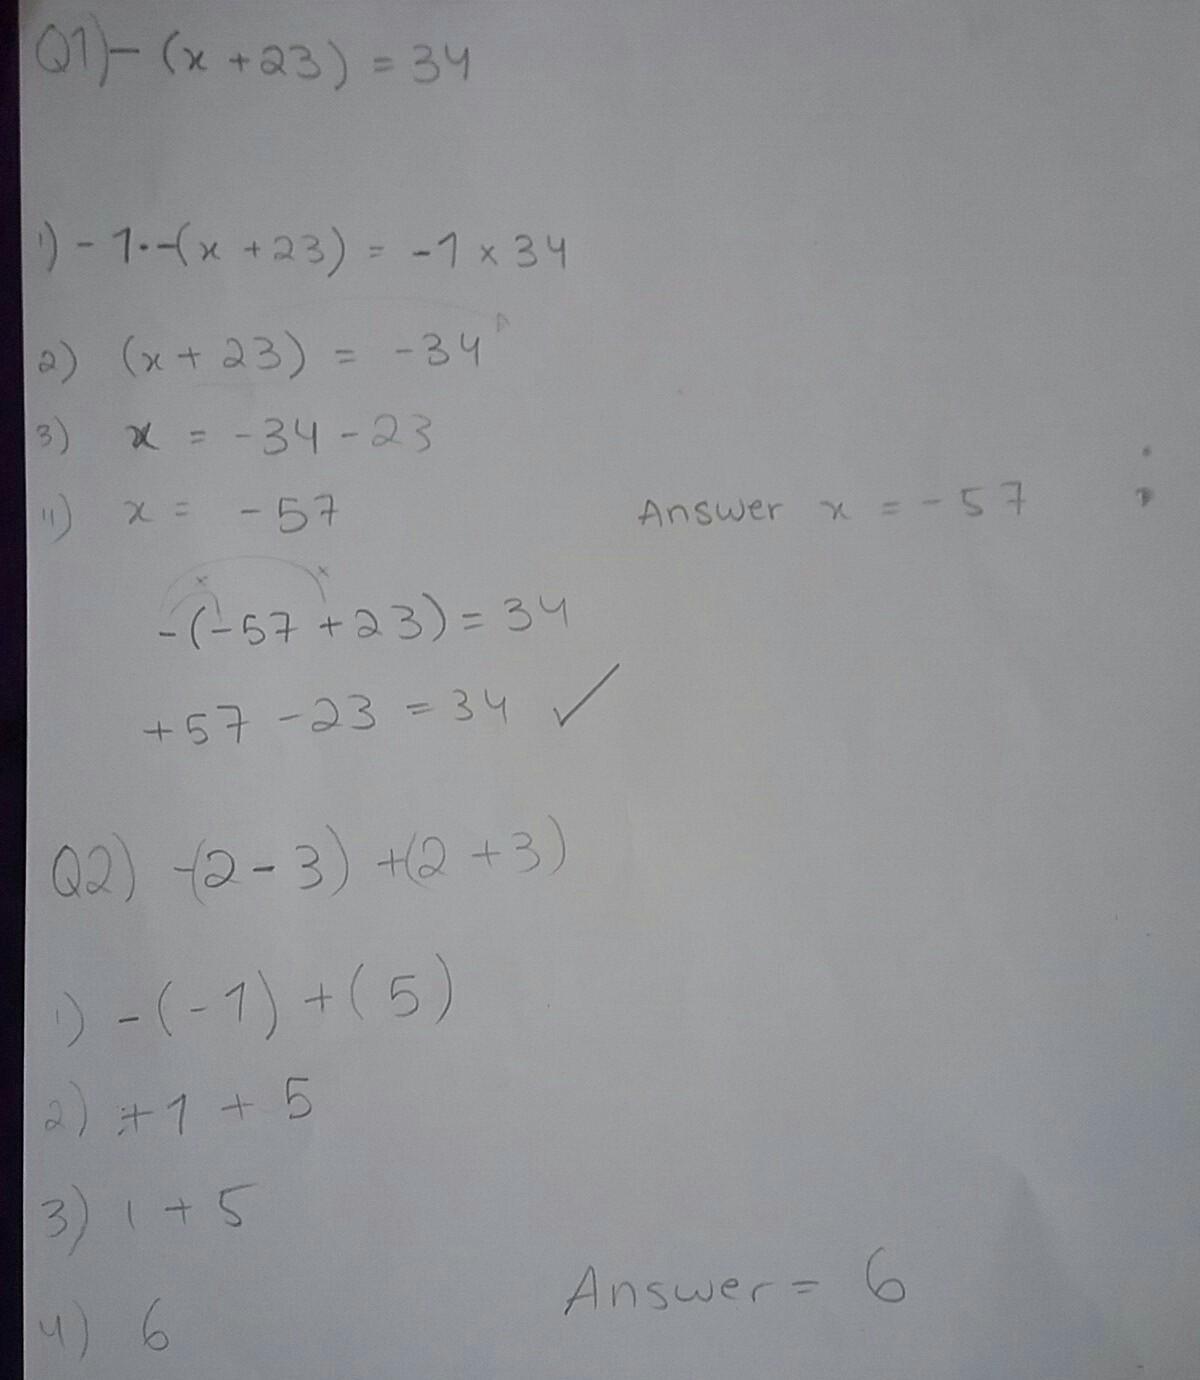 Q1) - (x + 23) = 34
1) - 1 · -(x + 23) = -1 × 34
2) (x + 23) = -34
3) x = -34 - 23
4) x = -57 Answer x = -57
-(-57 + 23) = 34
+57 - 23 = 34 ✓
Q2) -(2 - 3) + (2 + 3)
1) -(-1) + (5)
2) +1 + 5
3) 1 + 5
4) 6 Answer = 6